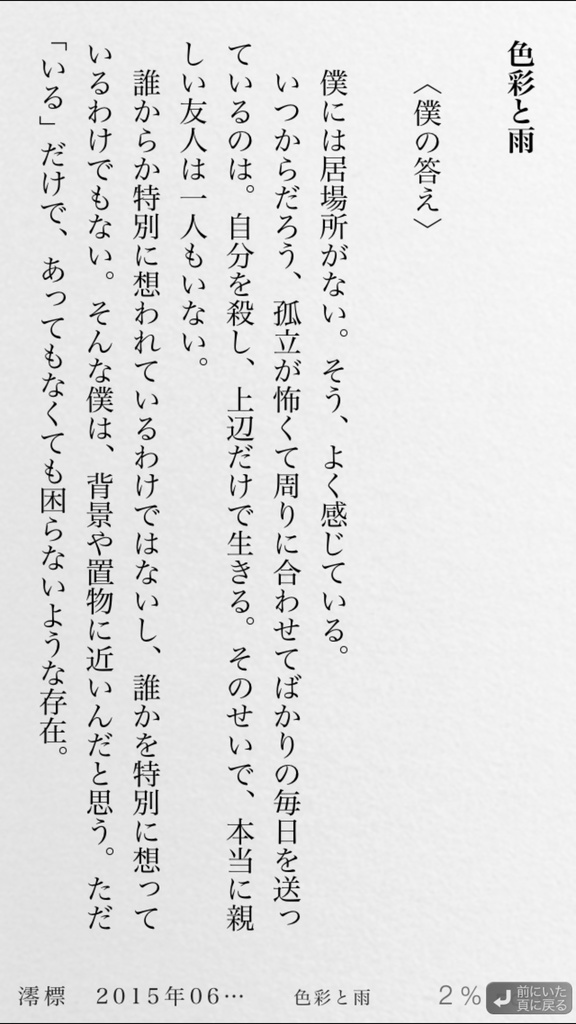 色彩と雨
〈僕の答え〉
僕には居場所がない。そう、よく感じている。
いつからだろう、孤立が怖くて周りに合わせてばかりの毎日を送っ
ているのは。自分を殺し、上辺だけで生きる。そのせいで、本当に親
しい友人は一人もいない。
誰からか特別に想われているわけではないし、誰かを特別に想って
いるわけでもない。そんな僕は、背景や置物に近いんだと思う。ただ
「いる」だけで、あってもなくても困らないような存在。
澪標 2015年06… 色彩と雨 2%
前にいた
頁に戻る